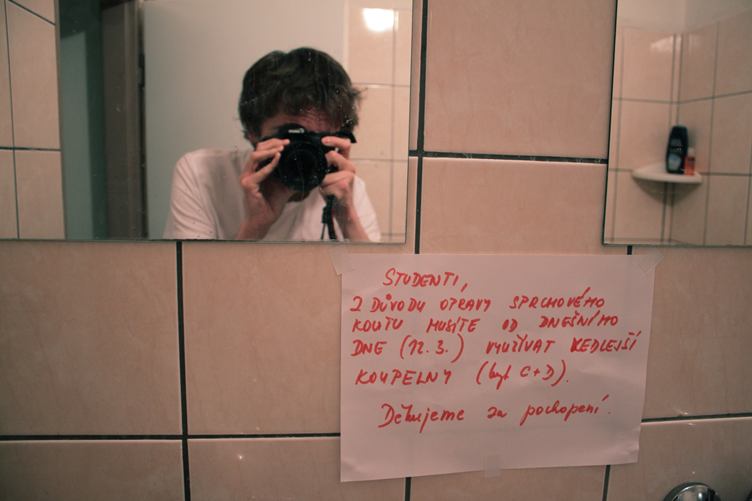 STUDENTI,
Z DŮVODU OPRAVY SPRCHOVÉHO
KOUTU MUSÍTE OD DNEŠNÍHO
DNE (12. 3.) VYUŽÍVAT VEDLEJŠÍ
KOUPELNY (byt C+D).
Děkujeme za pochopení.